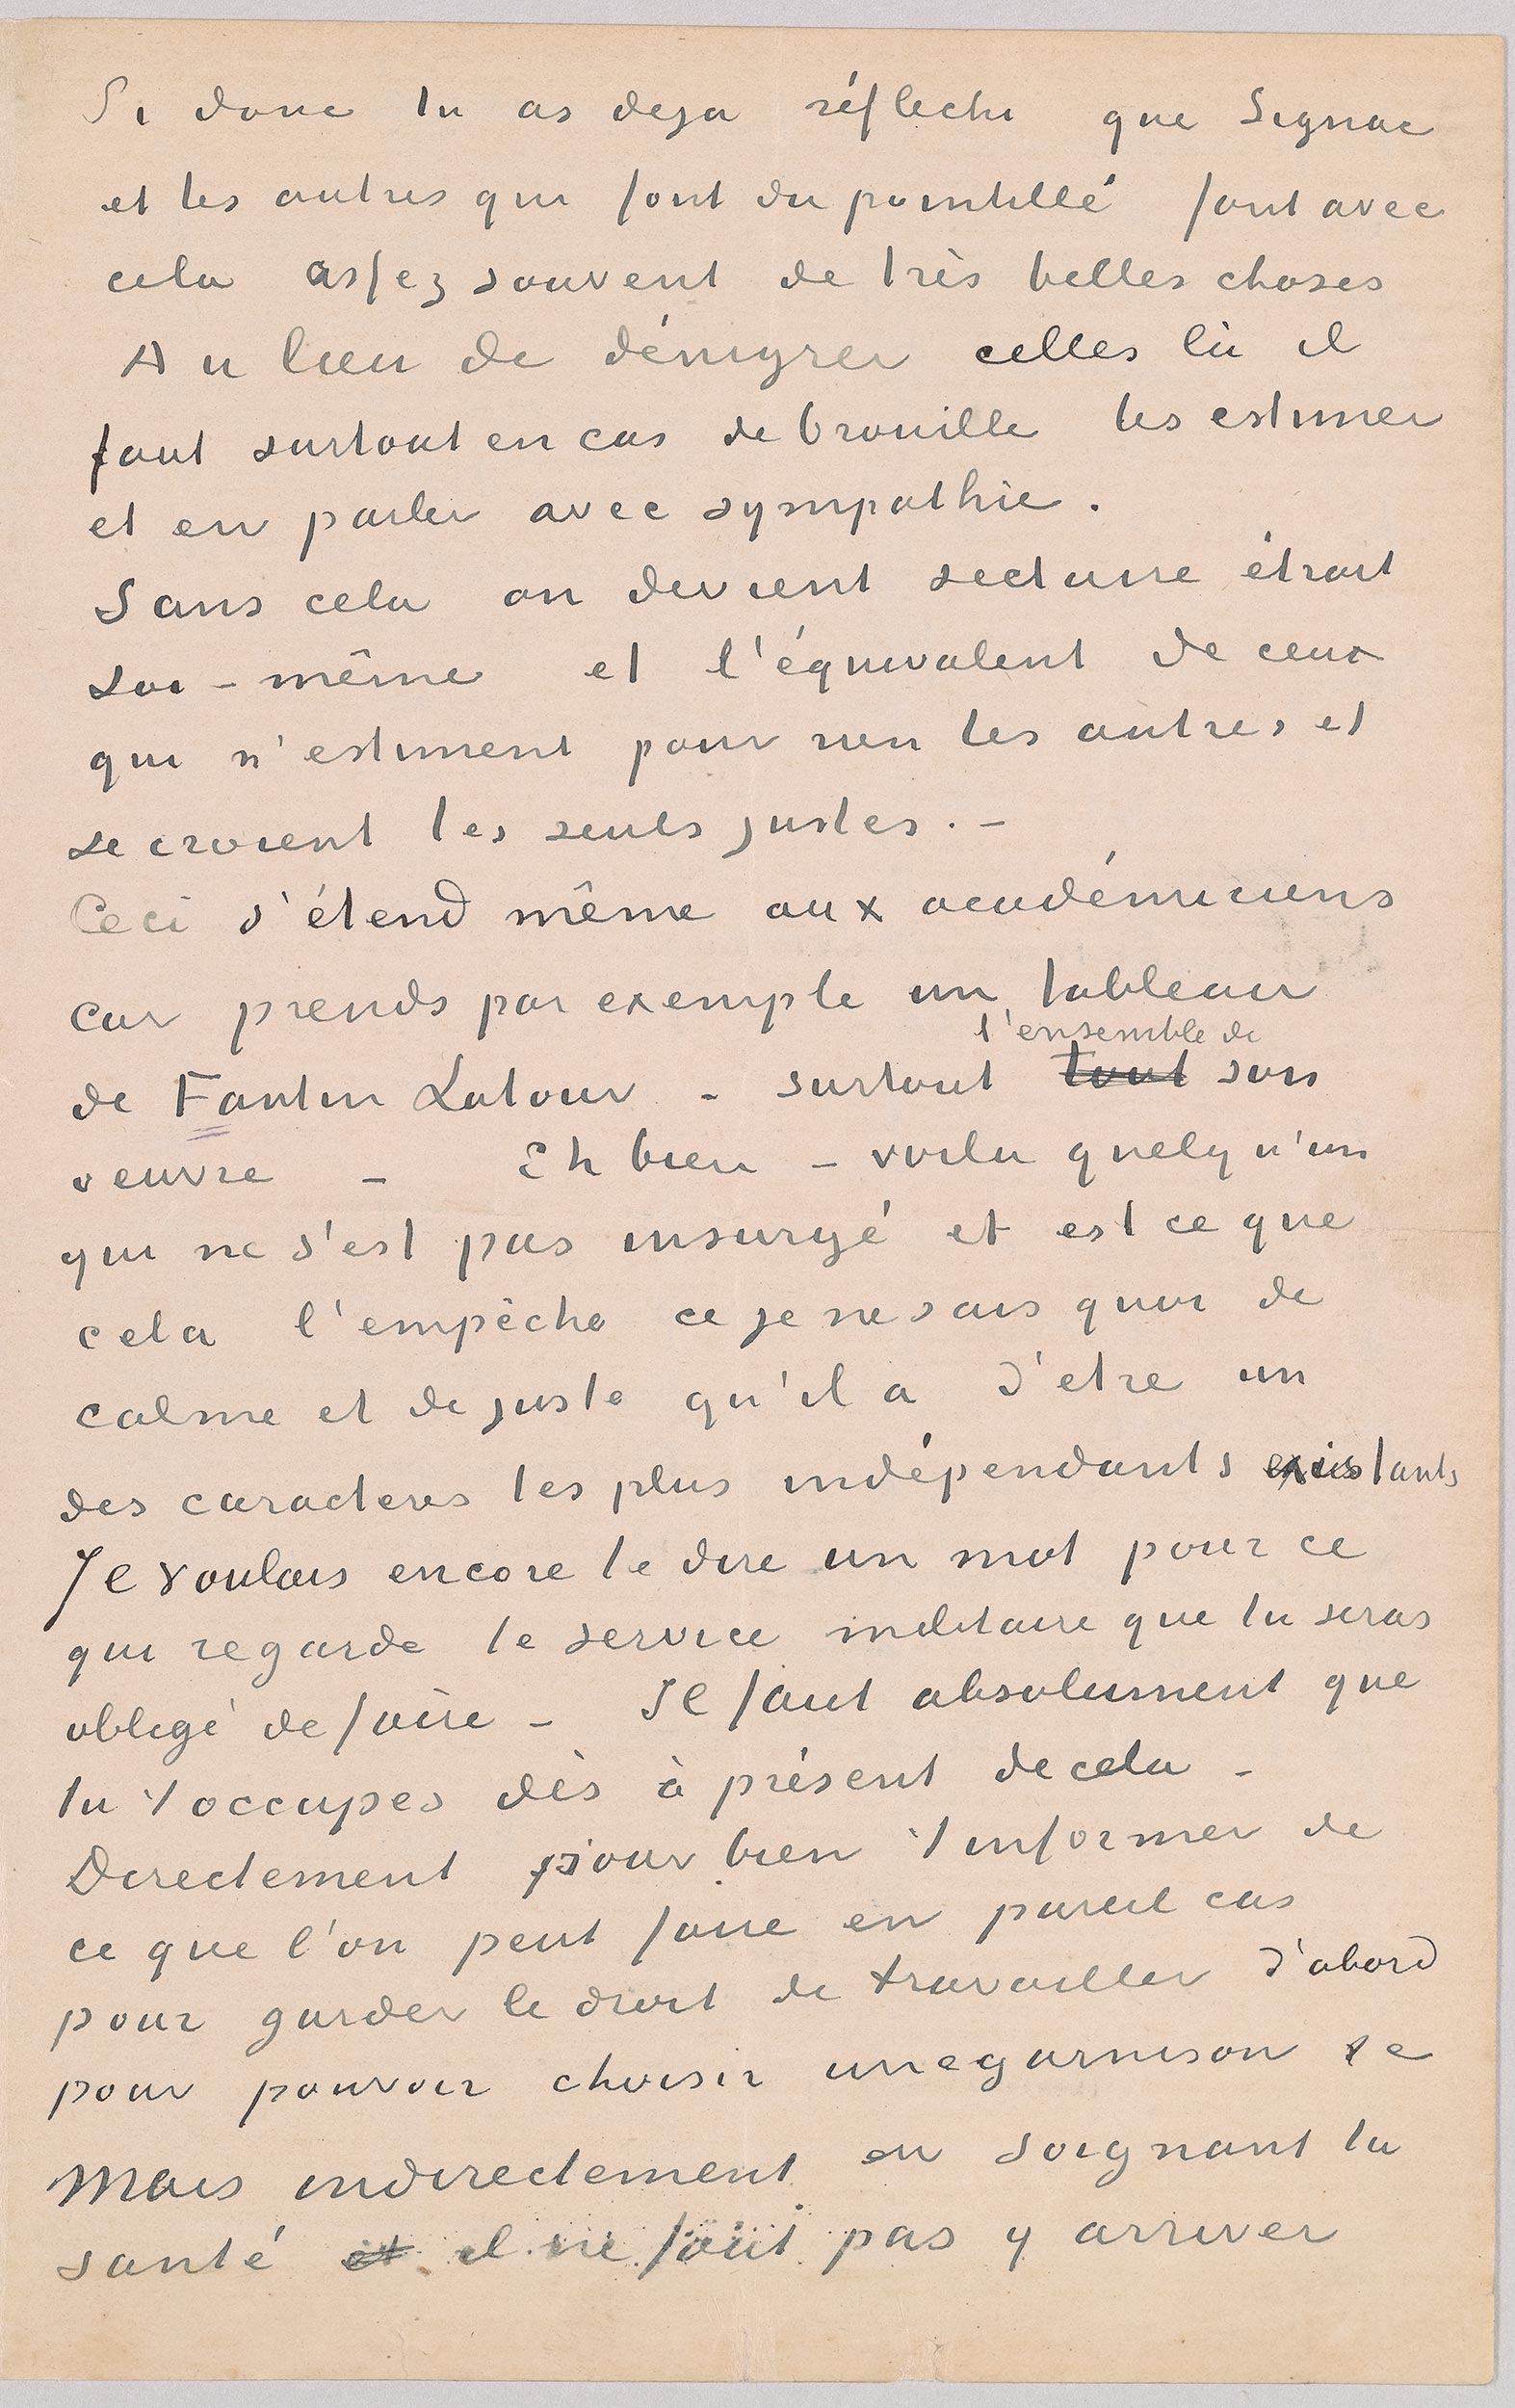 Si donc tu as deja réflechi que Signac
et les autres qui font du pointillé font avec
cela assez souvent de très belles choses
Au lieu de dénigrer celles là il
faut surtout en cas de brouille les estimer
et en parler avec sympathie.
Sans cela on devient sectaire étroit
soi-même et l'équivalent de ceux
qui n'estiment pour rien les autres et
se croient les seuls justes. –
Ceci s'étend même aux académiciens
car prends par exemple un tableau
l'ensemble de
de Fantin Latour – surtout tout son
oeuvre – Eh bien – voila quelqu'un
qui ne s'est pas insurgé et est ce que
cela l'empèche ce je ne sais quoi de
calme et de juste qu'il a d'etre un
des caracteres les plus indépendants existants
Je voulais encore te dire un mot pour ce
qui regarde le service militaire que tu seras
obligé de faire – Il faut absolument que
tu t'occupes dès à présent de cela –
Directement pour bien t'informer de
ce que l'on peut faire en pareil cas
pour garder le droit de travailler d'abord
pour pouvoir choisir une garnison &c
Mais indirectement en soignant ta
santé et il ne faut pas y arriver